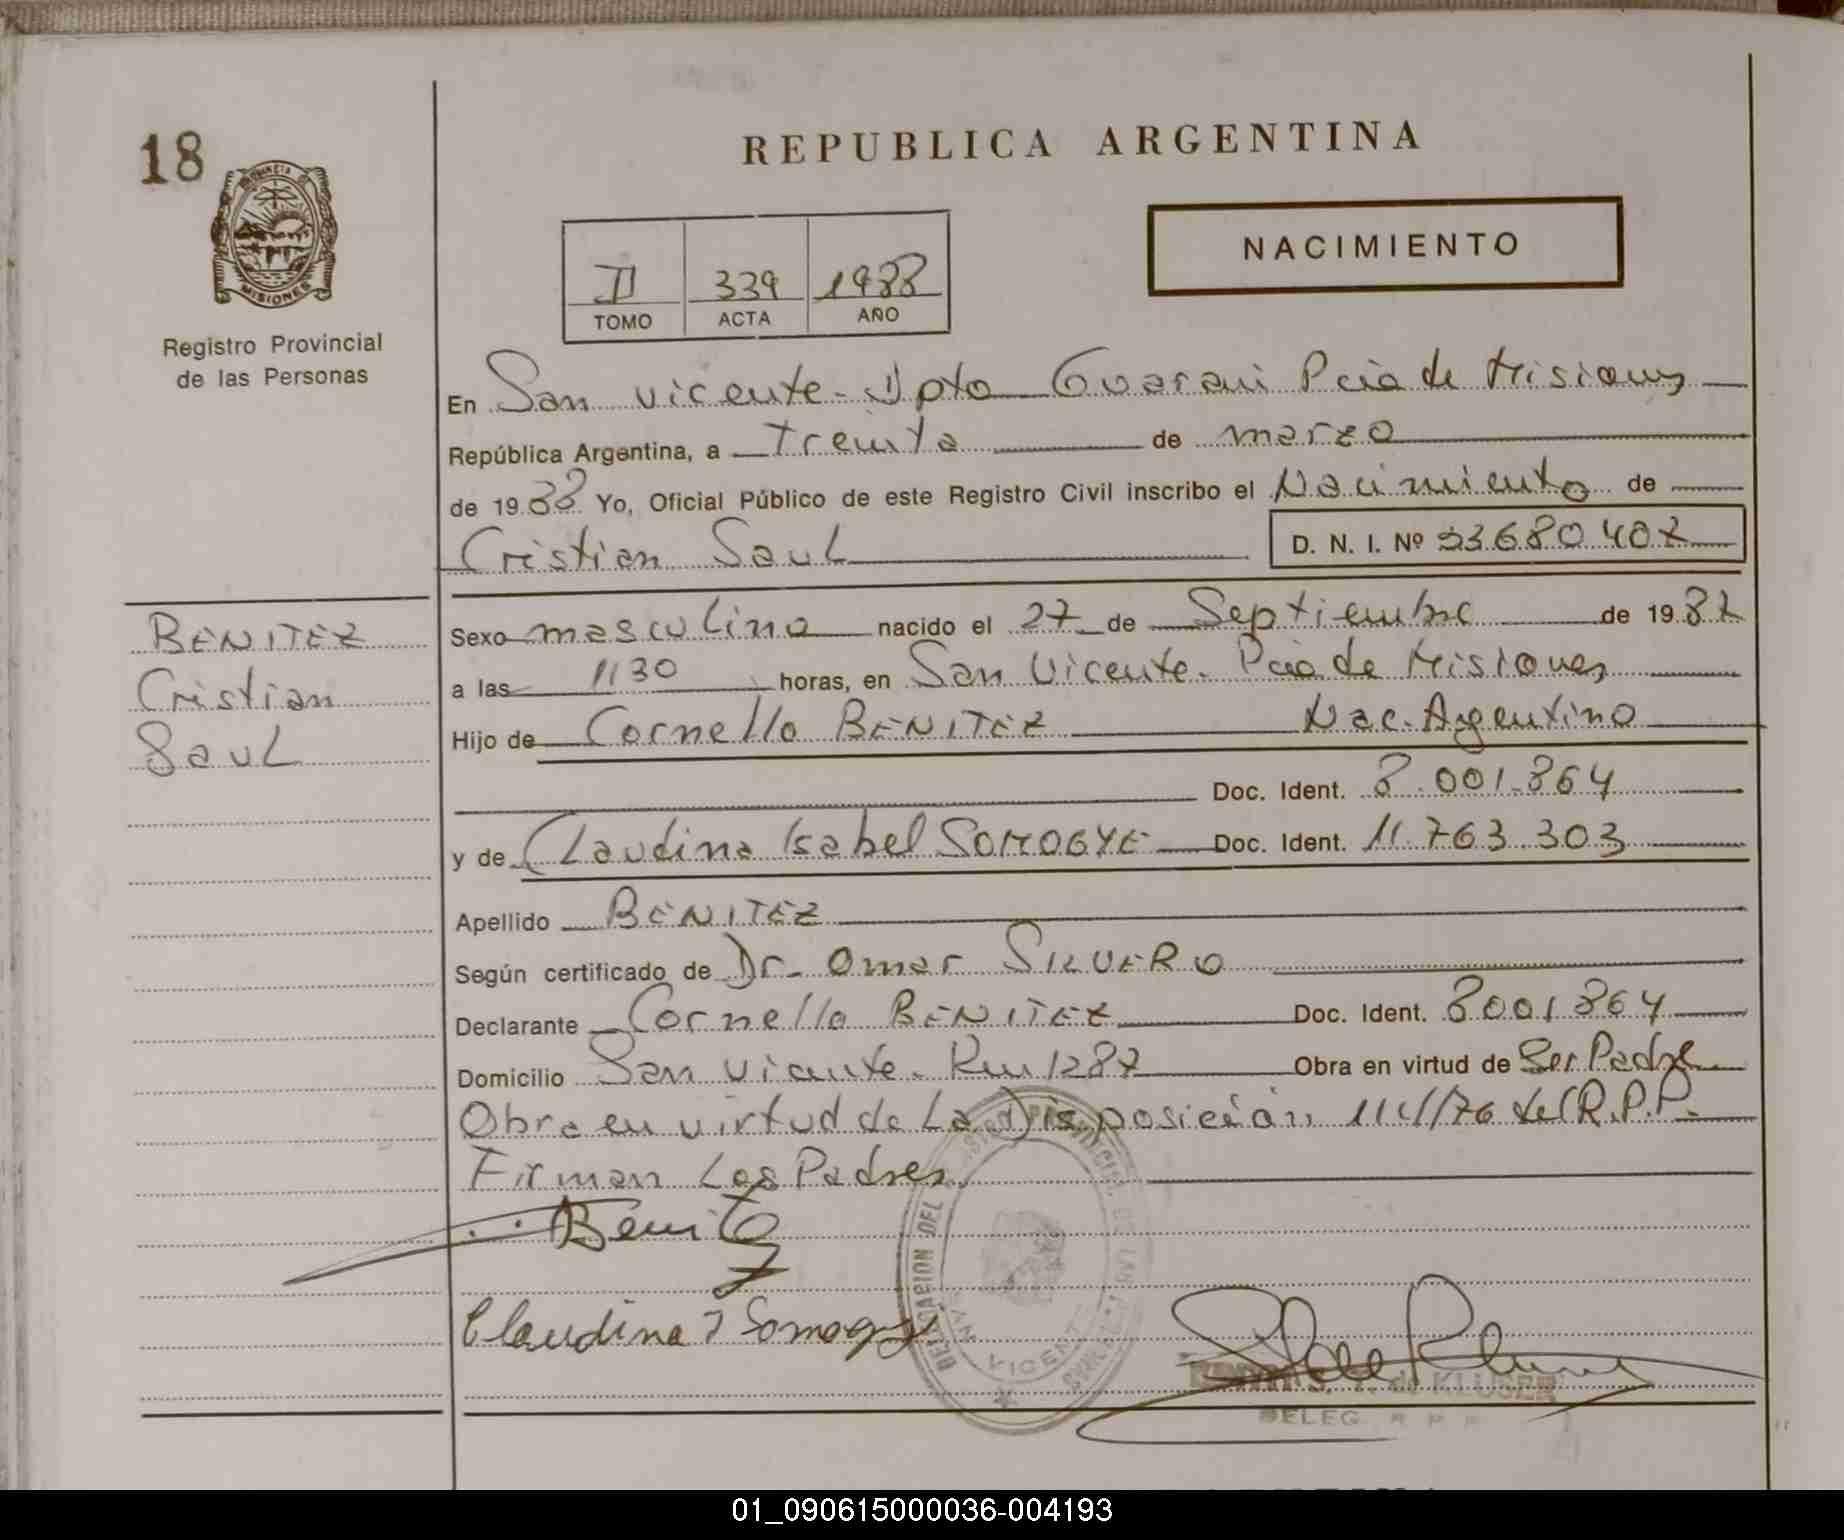 18
REPUBLICA ARGENTINA
PROVINCIA DE
MISIONES
Registro Provincial
de las Personas
NACIMIENTO
II 339 1988
TOMO ACTA AÑO
En San Vicente - Dpto Guarani Pcia de Misiones
República Argentina, a Treinta de marzo
de 1988 Yo, Oficial Público de este Registro Civil inscribo el Nacimiento de
Cristian Saul D. N. I. Nº 33680407
BENITEZ
Cristian
Saul
Sexo masculino nacido el 27 de Septiembre de 1987
a las 1130 horas, en San Vicente - Pcia de Misiones
Hijo de Cornelio BENITEZ Nac. Argentino
Doc. Ident. 8.001.864
y de Claudina Isabel SOMOGYE Doc. Ident. 11.763.303
Apellido BENITEZ
Según certificado de Dr. Omar SILVERO
Declarante Cornelio BENITEZ Doc. Ident. 8001864
Domicilio San Vicente - Km 1287 Obra en virtud de Ser Padre
Obra en virtud de La Disposición del R.P.P.
Firman Los Padres
Benitez
Claudina I Somogye
DELEGACION DEL REGISTRO PROVINCIAL DE LAS PERSONAS
SAN VICENTE
MISIONES
de KLUSER
DELEG. R P P
01_090615000036-004193